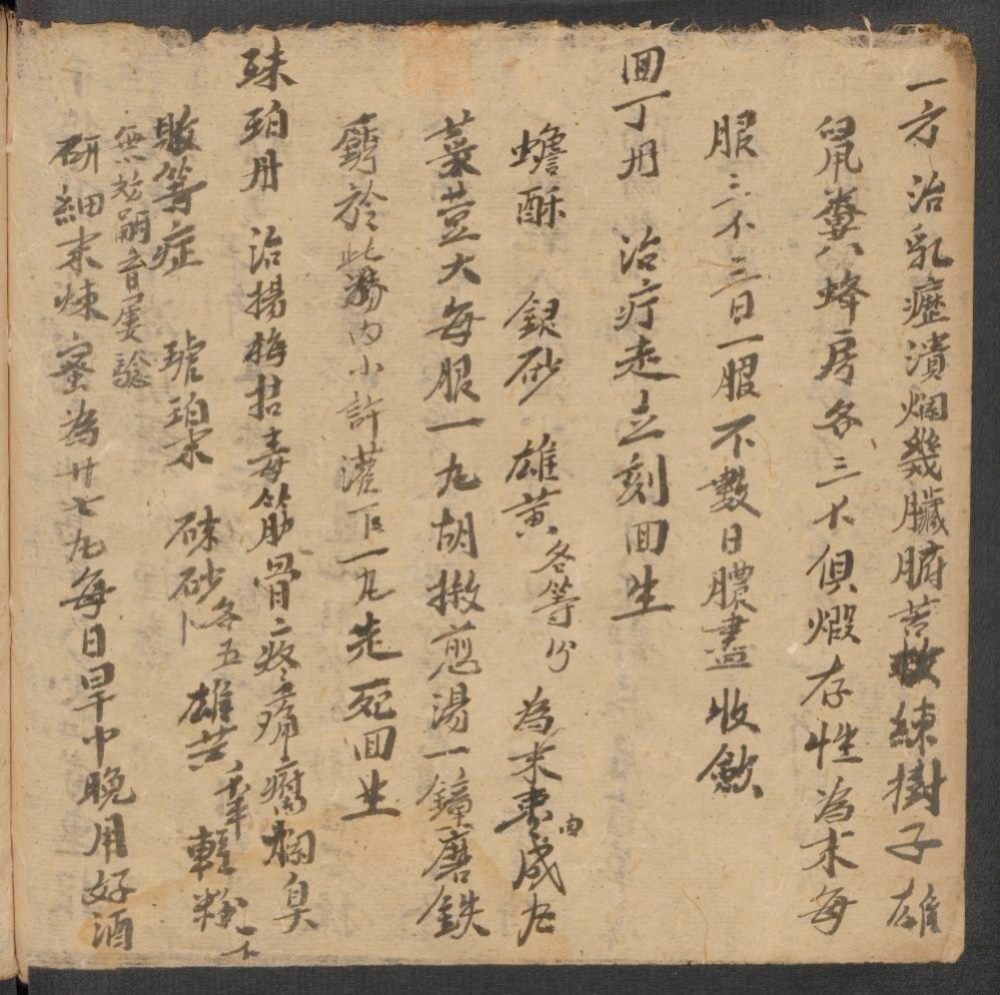 一方治乳癧潰爛幾臟腑苦楝樹子雄
鼠糞八蜂房各三个俱煆存性為末每
服三不三日一服不數日膿盡收斂
回丁丹 治疔走立刻回生
蟾酥 銀砂 雄黃各等分 為末 成丸
菉荳大每服一丸胡椒煎湯一鐘磨鉄
銹於此湯內小許灌下一丸走死回生
珠珀丹 治揚梅 毒筋骨疼痛腐爛臭
敗等症 琥珀末 硃砂各五卜 雄黃 輕粉一不
無妨嗣育屢驗
研細末煉蜜為廿七丸每日早中晚用好酒